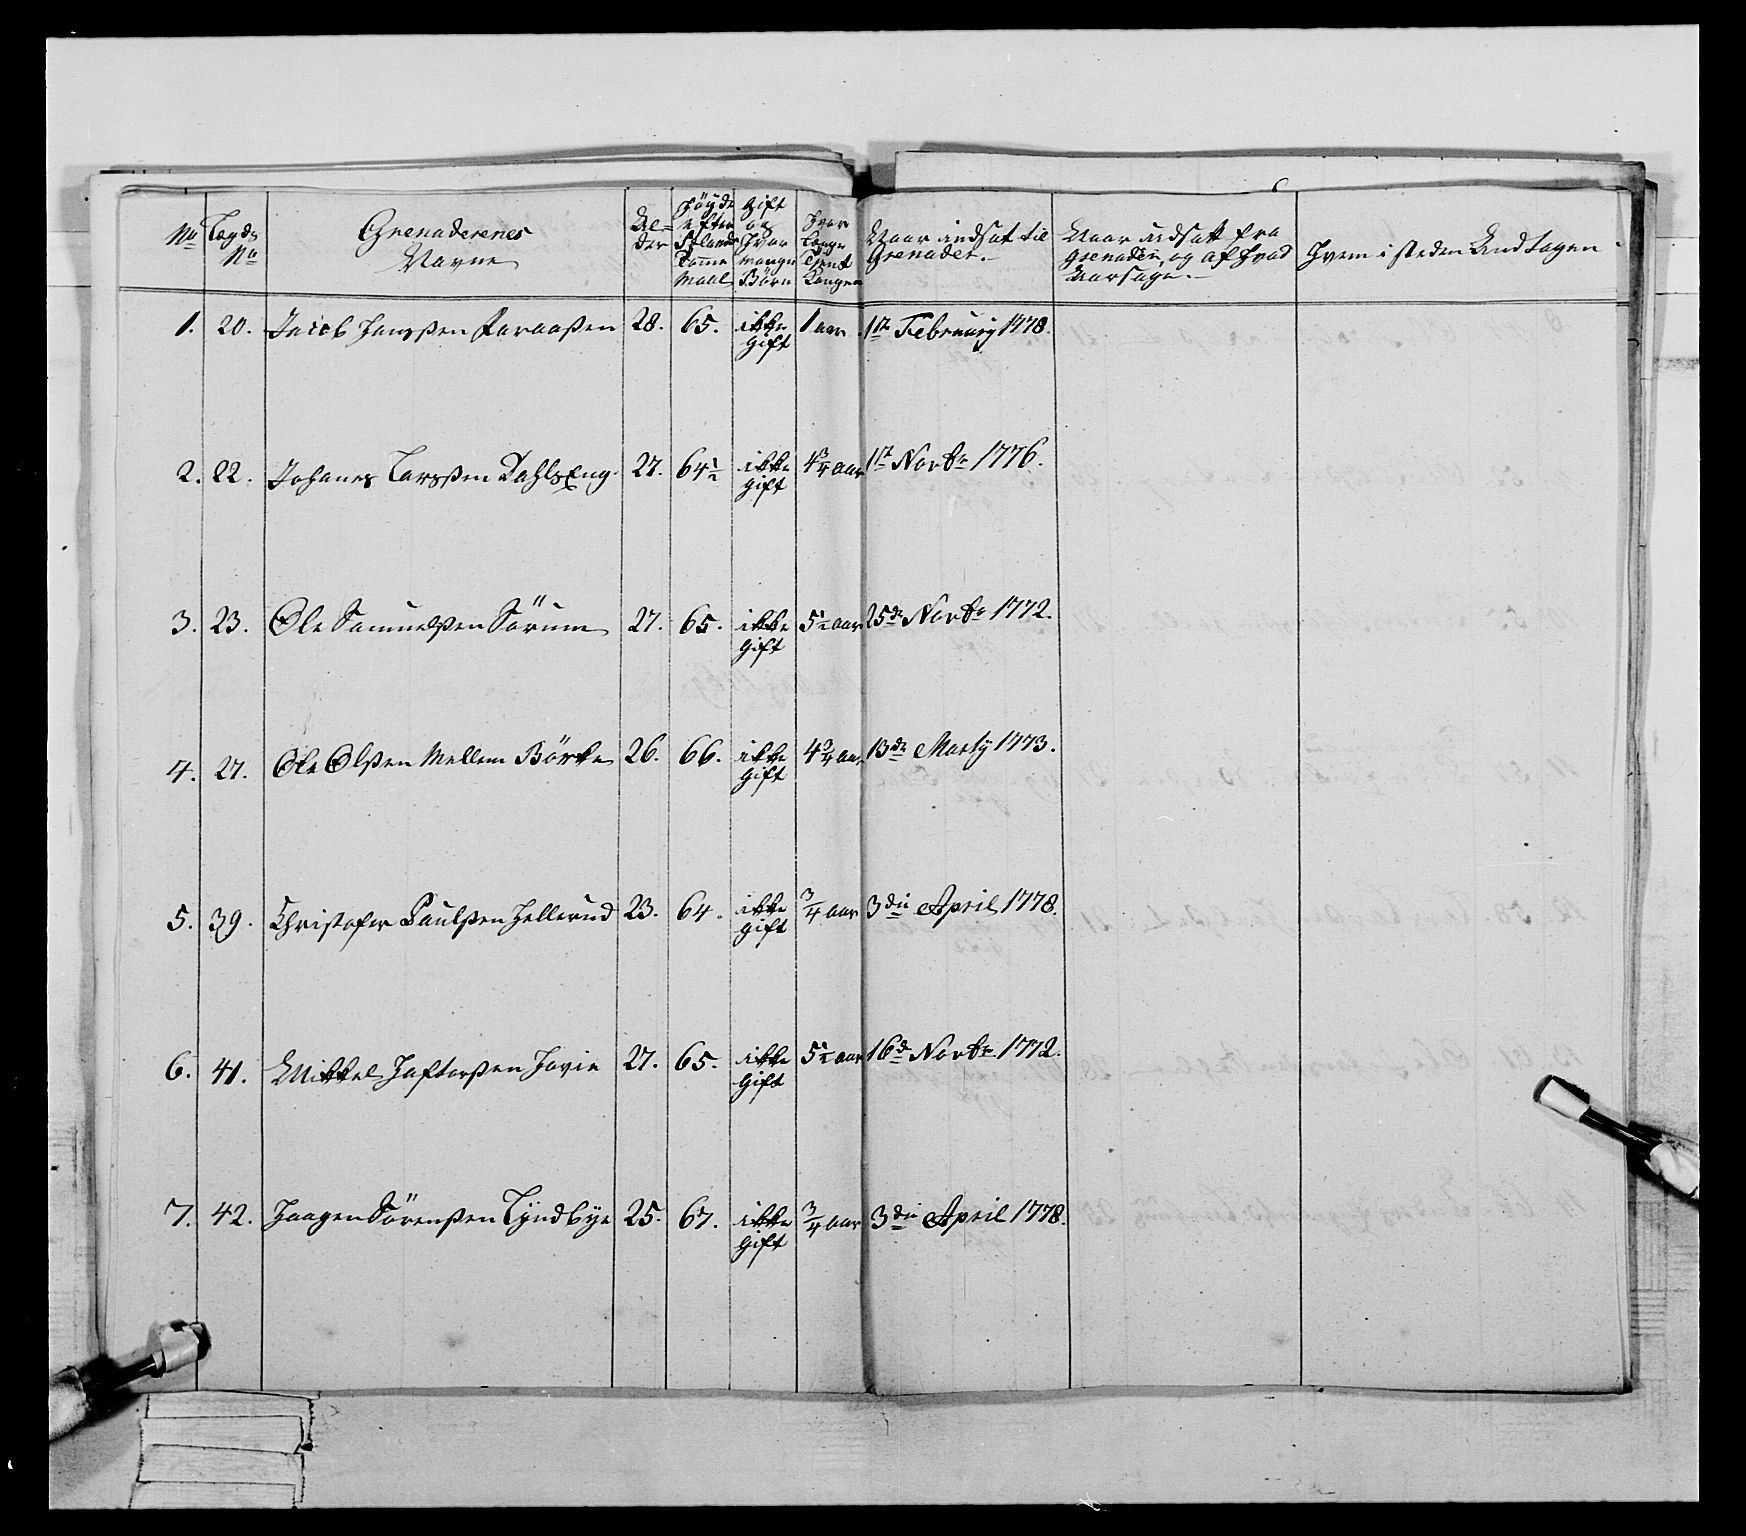 No
Lægds No
Grenaderenes Navne
Al= der
Høyde efter Sælands Tomme Maal
Gift og Hvor mange Børn
Hvor Længe Tjent Kongen
Naar indsat til Grenader.
Naar udsatt fra Grenader, og af hvad Aarsage.
Hvem i steden Andtagen
1. 20. Jacob Hanssen 28. 65. ikke Gift 1 aar 1te Februarij 1778.
2. 22. Johanes Larssen DahlsEng. 27. 64½ ikke Gift 4¾ aar 1te Novbr 1776.
3. 23. Ole Samuelssen Sörum 27. 65. ikke Gift 5½ aar 25de Novbr 1772.
4. 27. Ole Olssen Mellem Börke 26. 66. ikke Gift 4¾ aar 13de Martij 1773.
5. 39. Christofer Paulssen Hellerud 23. 64. ikke Gift ¾ aar 3die April 1778.
6. 41. Mikkel Haftorssen Hovie 27. 65. ikke Gift 5½ aar 16de Novbr 1772.
7. 42. Haagen Sörenssen Lyndbye 25. 67. ikke Gift ¾ aar 3die April 1778.